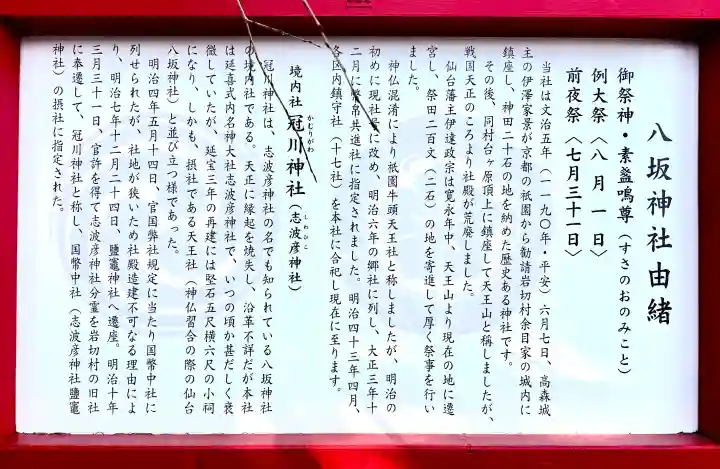 八坂神社由緒
御祭神・素盞鳴尊(すさのおのみこと)
例大祭〈八月一日〉
前夜祭〈七月三十一日〉
当社は文治五年(一一九〇年・平安)六月七日、高森城
主の伊澤家景が京都の祇園から勧請岩切村余目家の城内に
鎮座し、神田二十石の地を納めた歴史ある神社です。
その後、同村台ヶ原頂上に鎮座して天王山と稱しましたが、
戦国天正のころより社殿が荒廃しました。
仙台藩主伊達政宗は寛永年中、天王山より現在の地に遷
宮し、祭田二百文(二石)の地を寄進して厚く祭事を行い
ました。
神仏混淆により祇園牛頭天王社と称しましたが、明治の
初めに現社号に改め、明治六年の郷社に列し、大正三年十
二月に幣帛共進社に指定されました。明治四十三年四月、
各区内鎮守社(十七社)を本社に合祀し現在に至ります。
境内社 冠川神社(志波彦神社)
かむりがわ
しわひこ
冠川神社は、志波彦神社の名でも知られている八坂神社
の境内社である。天正に縁起を焼失し、沿革不詳だが本社
は延喜式内名神大社志波彦神社で、いつの頃か甚だしく衰
微していたが、延宝三年の再建には堅石五尺横六尺の小祠
になり、しかも、摂社である天王社(神仏習合の際の仙台
八坂神社)と並び立つ様であった。
明治四年五月十四日、官国弊社規定に当たり国幣中社に
列せられたが、社地が狭いため社殿造建不可なる理由によ
り、明治七年十二月二十四日、鹽竈神社へ遷座。明治十年
三月三十一日、官許を得て志波彦神社分霊を岩切村の旧社
に奉遷して、冠川神社と称し、国幣中社(志波彦神社鹽竈
神社)の摂社に指定された。